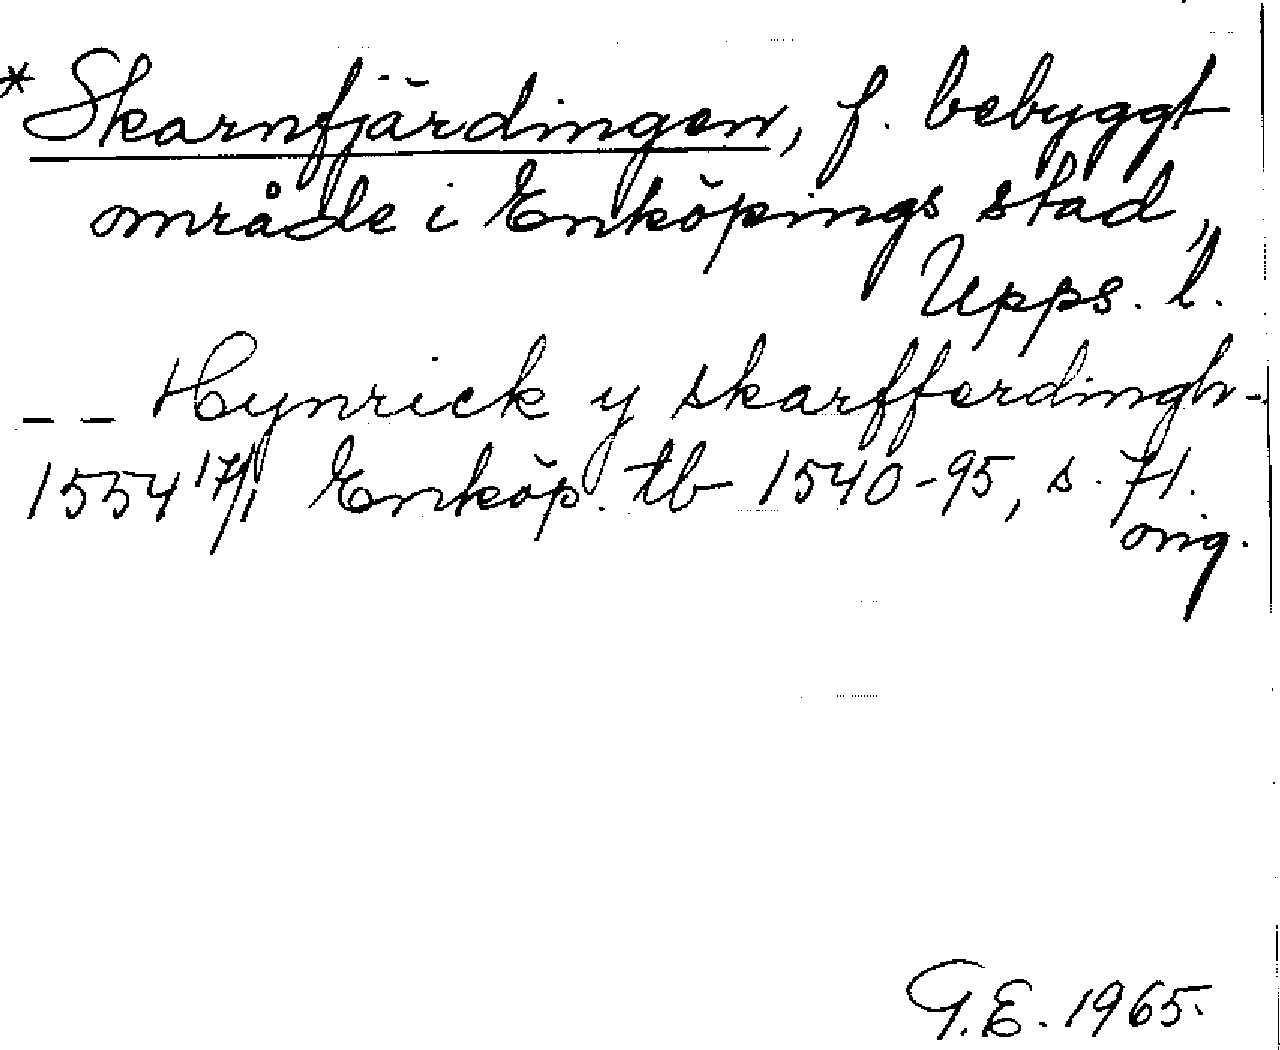 * Skarnfjärdingen, f. bebyggt
område i Enköpings stad,
Upps. l.
_ _ Hynrick y skarfferdingh -
1554 17/1 Enköp. tb 1540-95, s. 71.
orig.
G.E. 1965.